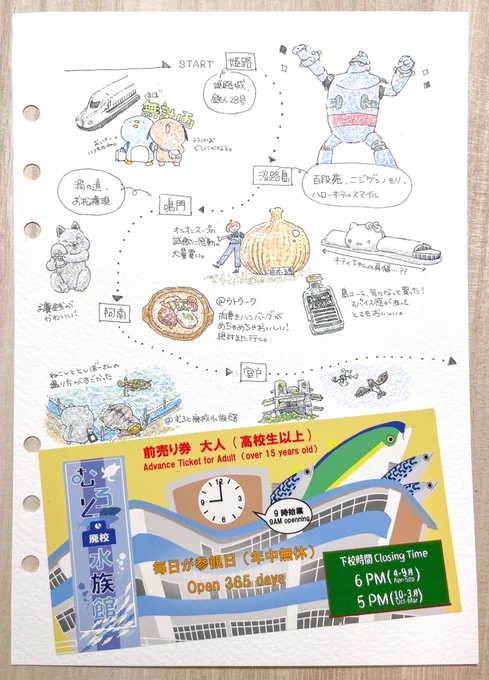 START
姫路
姫路城、
鉄人28号
ほぼ
無計画
淡路島
百段苑、ニジゲンノモリ、
ハローキティスマイル
渦の道、
お松権現
鳴門
オニオンスープの
試飲に感動し
大量買い。
キティちゃんの
島コーラ、気になって買った!
スパイス感があって
とてもおいしい。
かわいい!
阿南
@ウトウーク
肉巻きハンバーグが
めちゃめちゃおいしい!
絶対またテイク。
室戸
@むろと廃校水族館
前売り券 大人(高校生以上)
Advance Ticket for Adult (over 15 years old)
むろと
廃校
水族館
9時始業
9AM openning
毎日が参観日(年中無休)
Open 365 days
下校時間 Closing Time
6 PM (4-9月 Apr-Sep)
5 PM (10-3月 Oct-Mar)